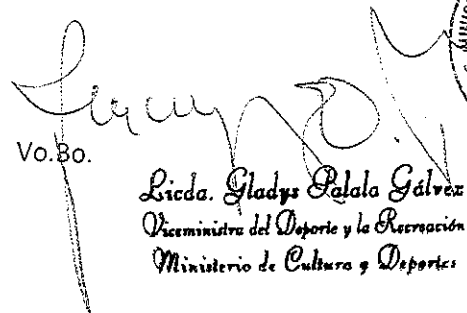 Vo.Bo.
Licda. Gladys Palala Gálvez
Viceministra del Deporte y la Recreación
Ministerio de Cultura y Deportes